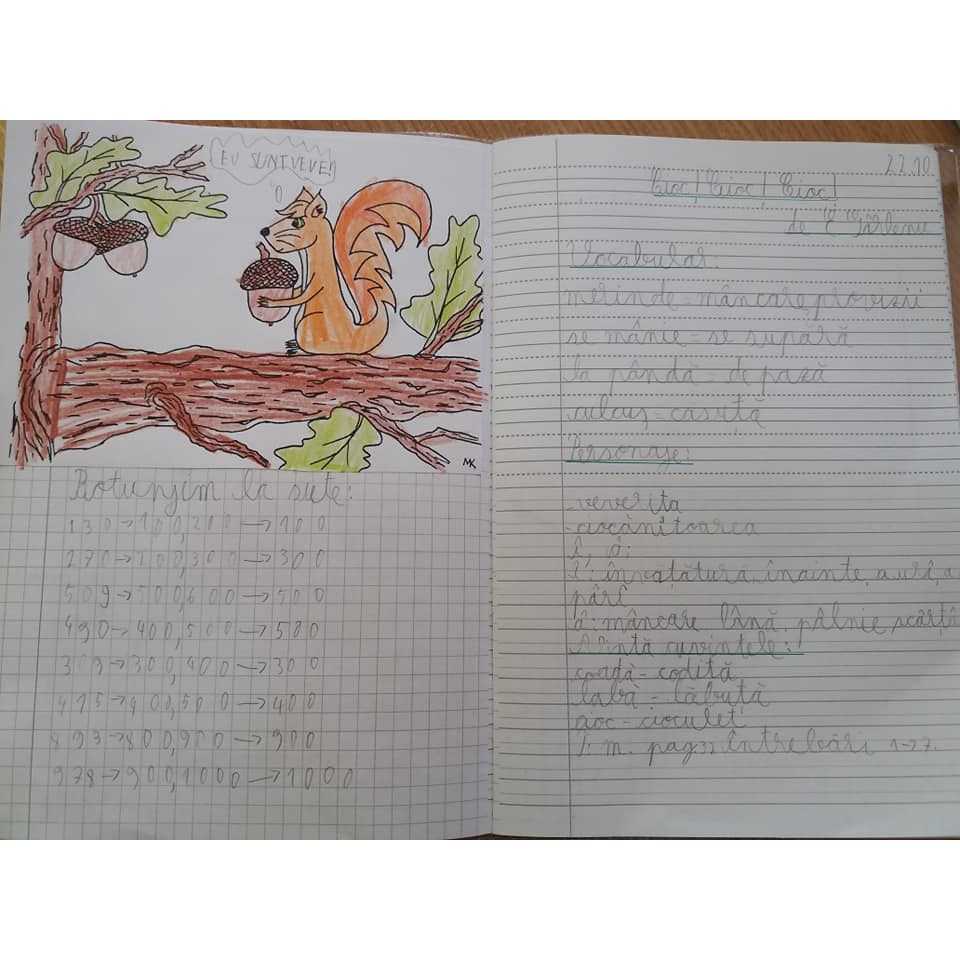 EU SUNT VEVE!
MK
Rotunjim la sute:
130→100,200→100
270→200,300→300
509→500,600→500
490→400,500→500
309→300,400→300
415→400,500→400
893→800,900→900
978→900,1000→1000
22.10
Cioc! Cioc! Cioc!
de E Gârleanu
Vocabular:
merinde=mâncare, provizii
se mânie=se supără
la pândă=de pază
culcuș=căsuța
Personaje:
-veverița
-ciocănitoarea
î, â:
î: învățătură, înainte, a urî, a
pârî
â: mâncare lână, pâlnie scârță
Alintă cuvintele:
coadă-codiță
labă-lăbuță
cioc-cioculeț
întrebări 1→7.